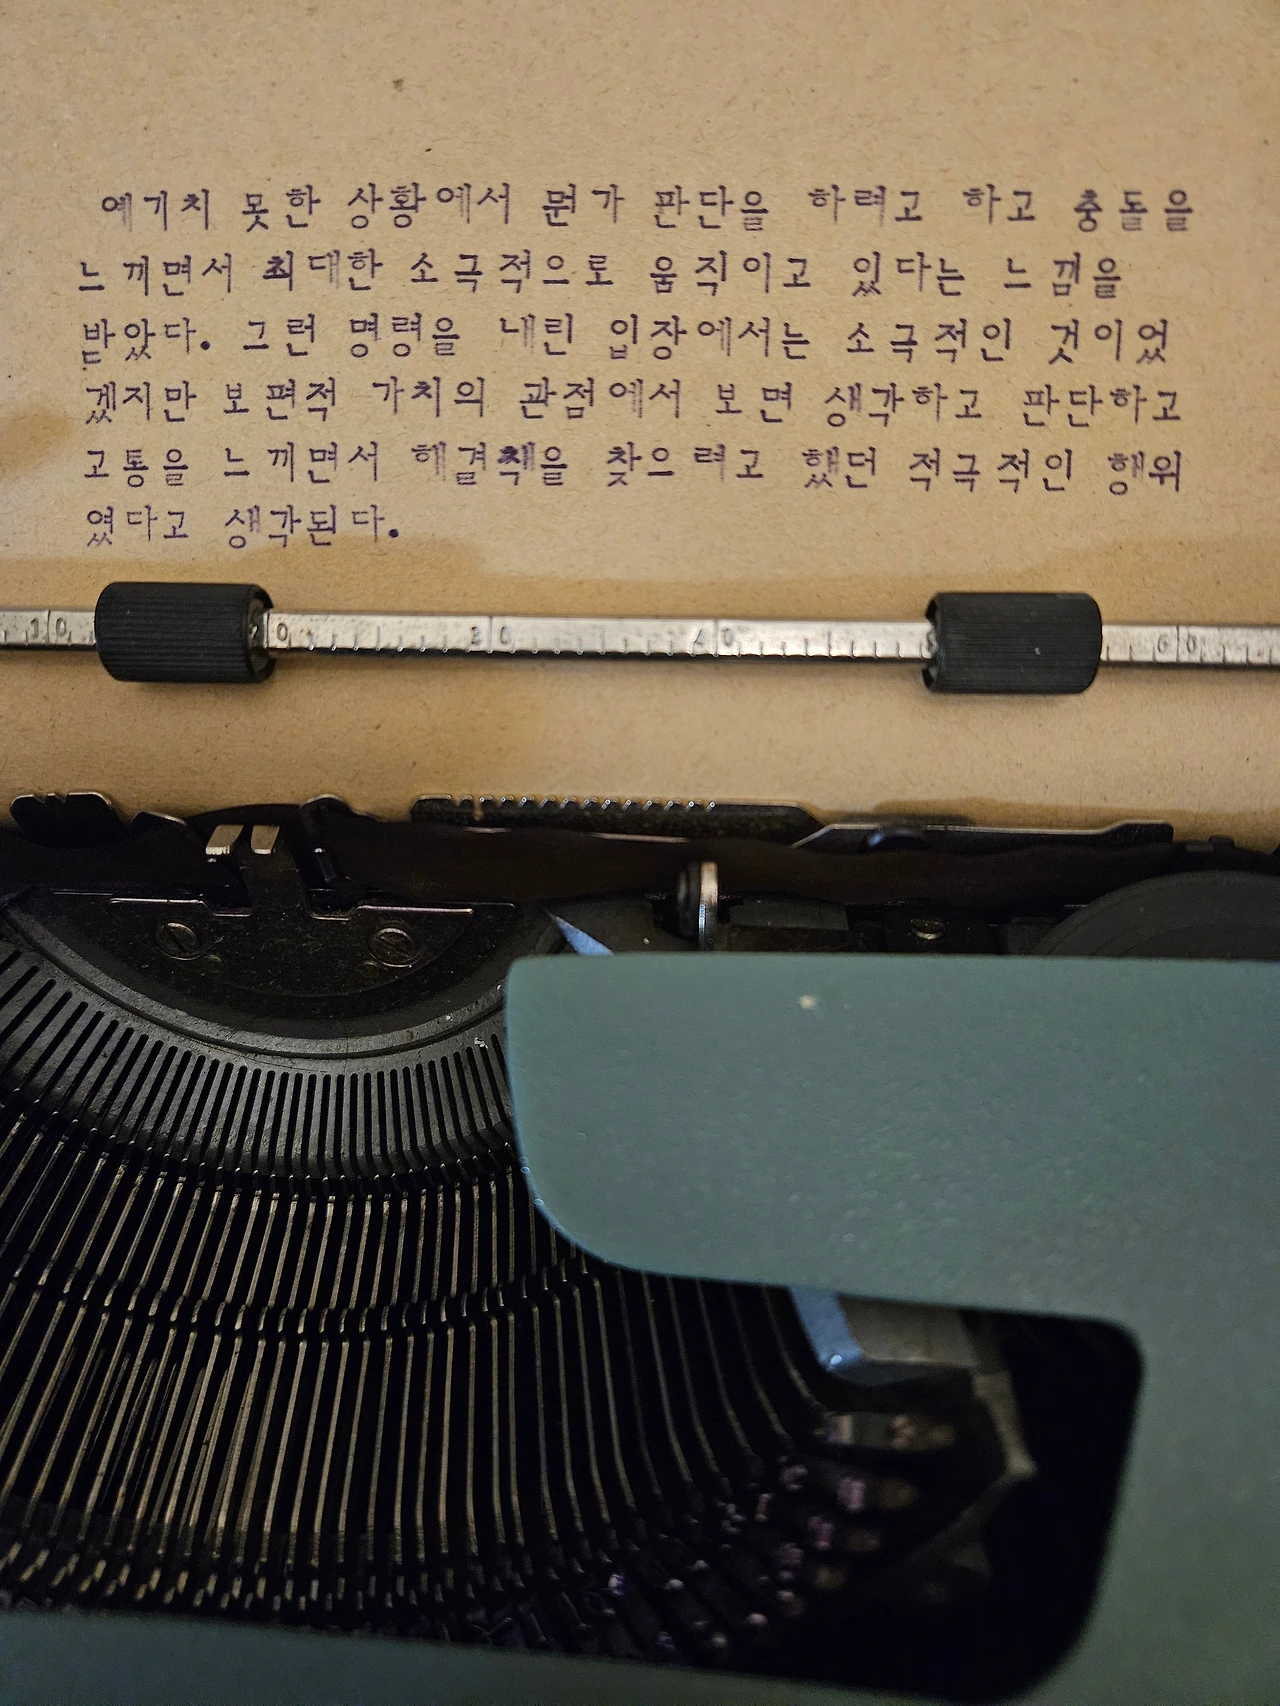 예기치 못한 상황에서 뭔가 판단을 하려고 하고 충돌을
느끼면서 최대한 소극적으로 움직이고 있다는 느낌을
받았다. 그런 명령을 내린 입장에서는 소극적인 것이었
겠지만 보편적 가치의 관점에서 보면 생각하고 판단하고
고통을 느끼면서 해결책을 찾으려고 했던 적극적인 행위
였다고 생각된다.
10 20 30 40 60